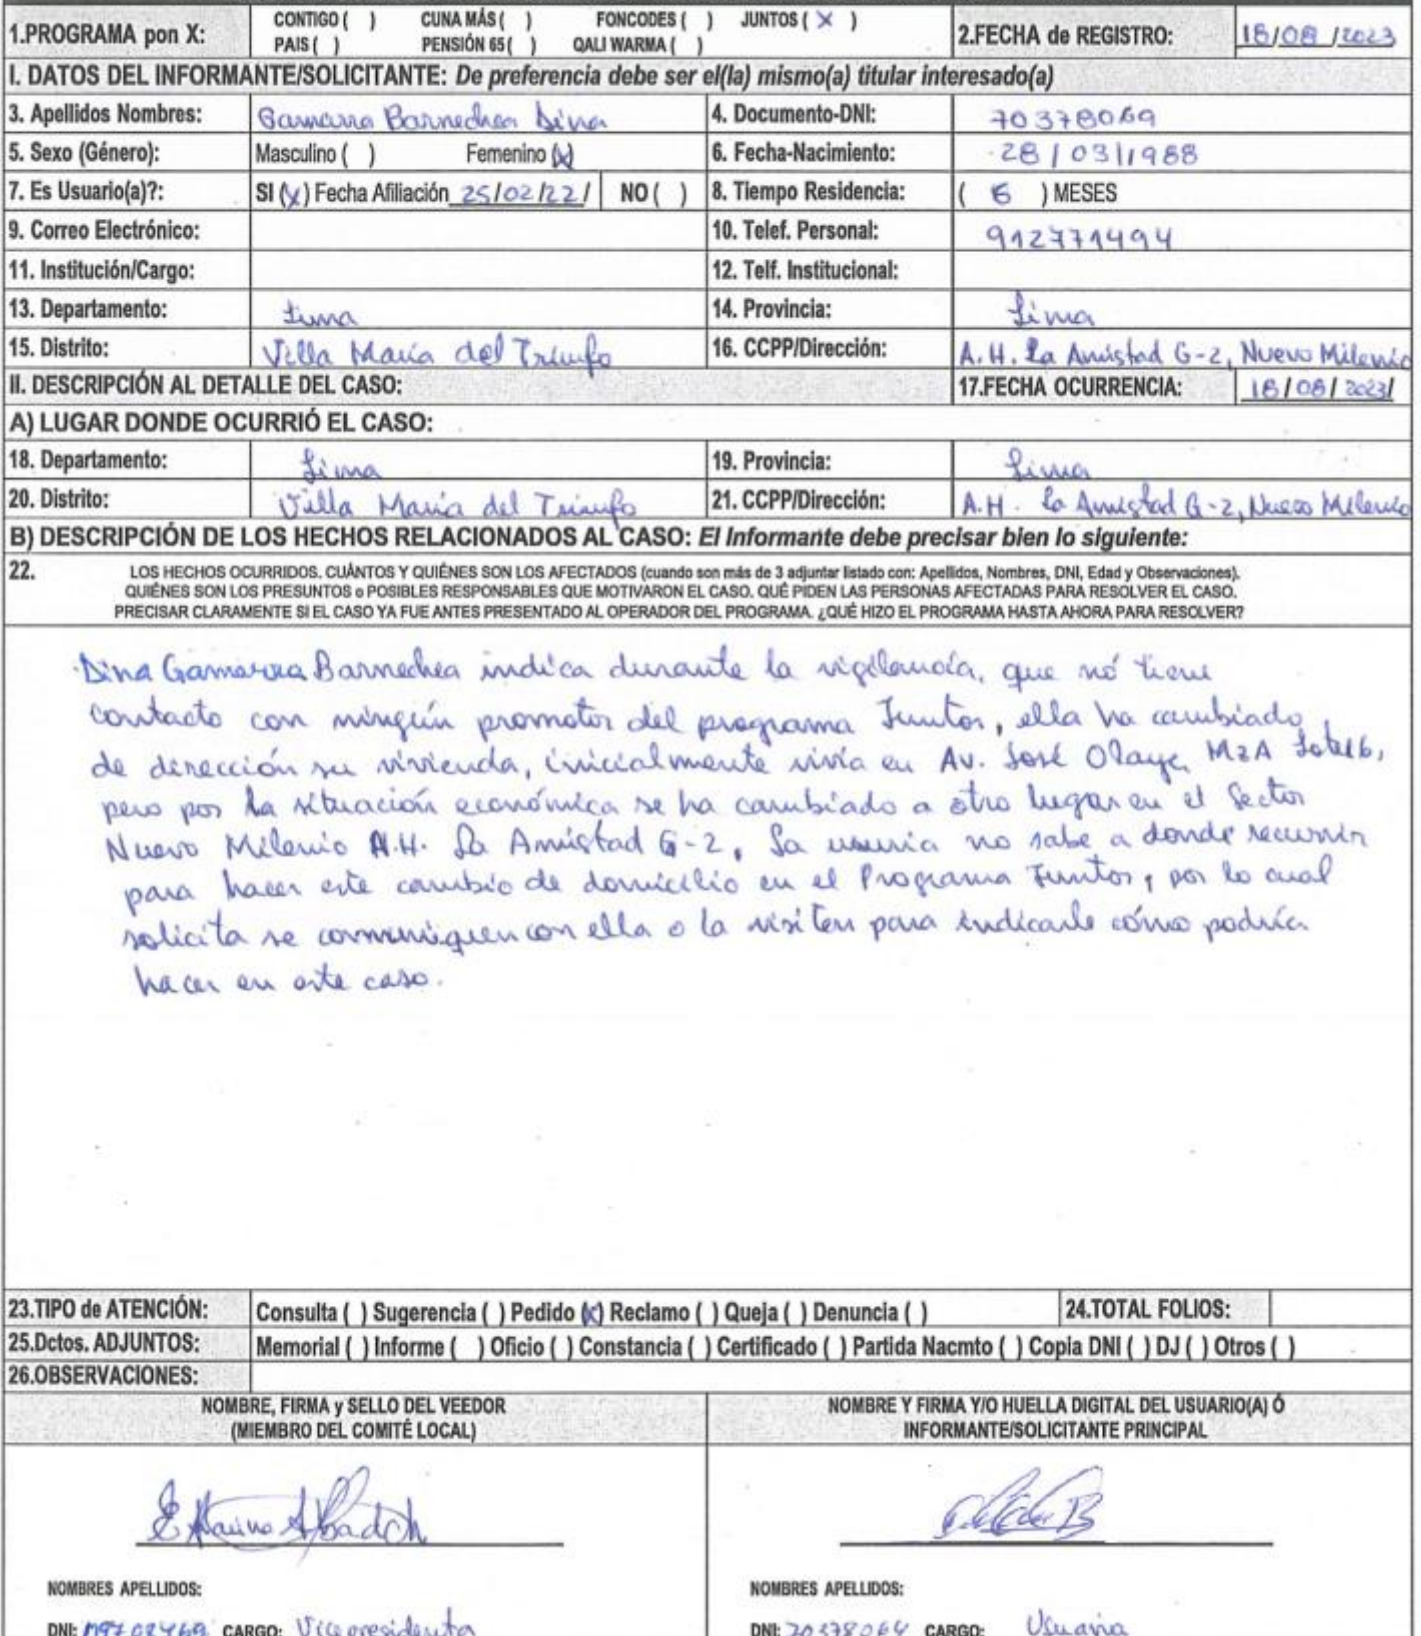 1.PROGRAMA pon X: CONTIGO ( ) CUNA MÁS ( ) FONCODES ( ) JUNTOS ( X ) 2.FECHA de REGISTRO: 18/08/2023
PAIS ( ) PENSIÓN 65 ( ) QALI WARMA ( )
I. DATOS DEL INFORMANTE/SOLICITANTE: De preferencia debe ser el(la) mismo(a) titular interesado(a)
3. Apellidos Nombres: Gamarra Barnechea Dina 4. Documento-DNI: 70378069
5. Sexo (Género): Masculino ( ) Femenino (X) 6. Fecha-Nacimiento: 28/03/1988
7. Es Usuario(a)?: SI (X) Fecha Afiliación 25/02/22/ NO ( ) 8. Tiempo Residencia: ( 6 ) MESES
9. Correo Electrónico: 10. Telef. Personal: 912771494
11. Institución/Cargo: 12. Telf. Institucional:
13. Departamento: Lima 14. Provincia: Lima
15. Distrito: Villa María del Triunfo 16. CCPP/Dirección: A.H. La Amistad G-2, Nuevo Milenio
II. DESCRIPCIÓN AL DETALLE DEL CASO: 17.FECHA OCURRENCIA: 18/08/2023/
A) LUGAR DONDE OCURRIÓ EL CASO:
18. Departamento: Lima 19. Provincia: Lima
20. Distrito: Villa María del Triunfo 21. CCPP/Dirección: A.H. La Amistad G-2, Nuevo Milenio
B) DESCRIPCIÓN DE LOS HECHOS RELACIONADOS AL CASO: El Informante debe precisar bien lo siguiente:
22. LOS HECHOS OCURRIDOS. CUÁNTOS Y QUIÉNES SON LOS AFECTADOS (cuando son más de 3 adjuntar listado con: Apellidos, Nombres, DNI, Edad y Observaciones).
QUIÉNES SON LOS PRESUNTOS o POSIBLES RESPONSABLES QUE MOTIVARON EL CASO. QUÉ PIDEN LAS PERSONAS AFECTADAS PARA RESOLVER EL CASO.
PRECISAR CLARAMENTE SI EL CASO YA FUE ANTES PRESENTADO AL OPERADOR DEL PROGRAMA. ¿QUÉ HIZO EL PROGRAMA HASTA AHORA PARA RESOLVER?
Dina Gamarra Barnechea indica durante la vigilancia, que no tiene
contacto con ningún promotor del programa Juntos, ella ha cambiado
de dirección su vivienda, inicialmente vivía en Av. José Olaya MzA Lote16,
pero por la situación económica se ha cambiado a otro lugar en el Sector
Nuevo Milenio A.H. La Amistad G-2, La usuria no sabe a donde recurrir
para hacer este cambio de domicilio en el Programa Juntos, por lo cual
solicita se comuniquen con ella o la visiten para indicarle cómo podría
hacer en este caso.
23.TIPO de ATENCIÓN: Consulta ( ) Sugerencia ( ) Pedido (X) Reclamo ( ) Queja ( ) Denuncia ( ) 24.TOTAL FOLIOS:
25.Dctos. ADJUNTOS: Memorial ( ) Informe ( ) Oficio ( ) Constancia ( ) Certificado ( ) Partida Nacmto ( ) Copia DNI ( ) DJ ( ) Otros ( )
26.OBSERVACIONES:
NOMBRE, FIRMA y SELLO DEL VEEDOR
(MIEMBRO DEL COMITÉ LOCAL)
NOMBRE Y FIRMA Y/O HUELLA DIGITAL DEL USUARIO(A) Ó
INFORMANTE/SOLICITANTE PRINCIPAL
NOMBRES APELLIDOS: NOMBRES APELLIDOS:
DNI: CARGO: Vicepresidenta DNI: CARGO: Usuaria